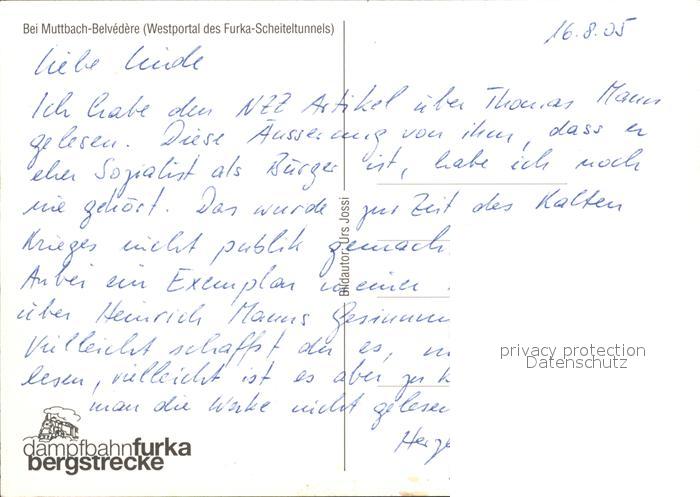 Bei Muttbach-Belvédère (Westportal des Furka-Scheiteltunnels)
16.8.05
Liebe Linde
Ich habe den NZZ Artikel über Thomas Mann
gelesen. Diese Äusserung von ihm, dass er
eher Sozialist als Bürger ist, habe ich noch
nie gehört. Das wurde zur Zeit des Kalten
Krieges nicht publik gemach
Anbei ein Exemplar meiner
über Heinrich Manns Gesinnun
Vielleicht schaffst du es,
lesen, vielleicht ist es aber zu k
man die Werke nicht gelesen
Herz
Bildautor: Urs Jossi
privacy protection
Datenschutz
dampfbahnfurka
bergstrecke